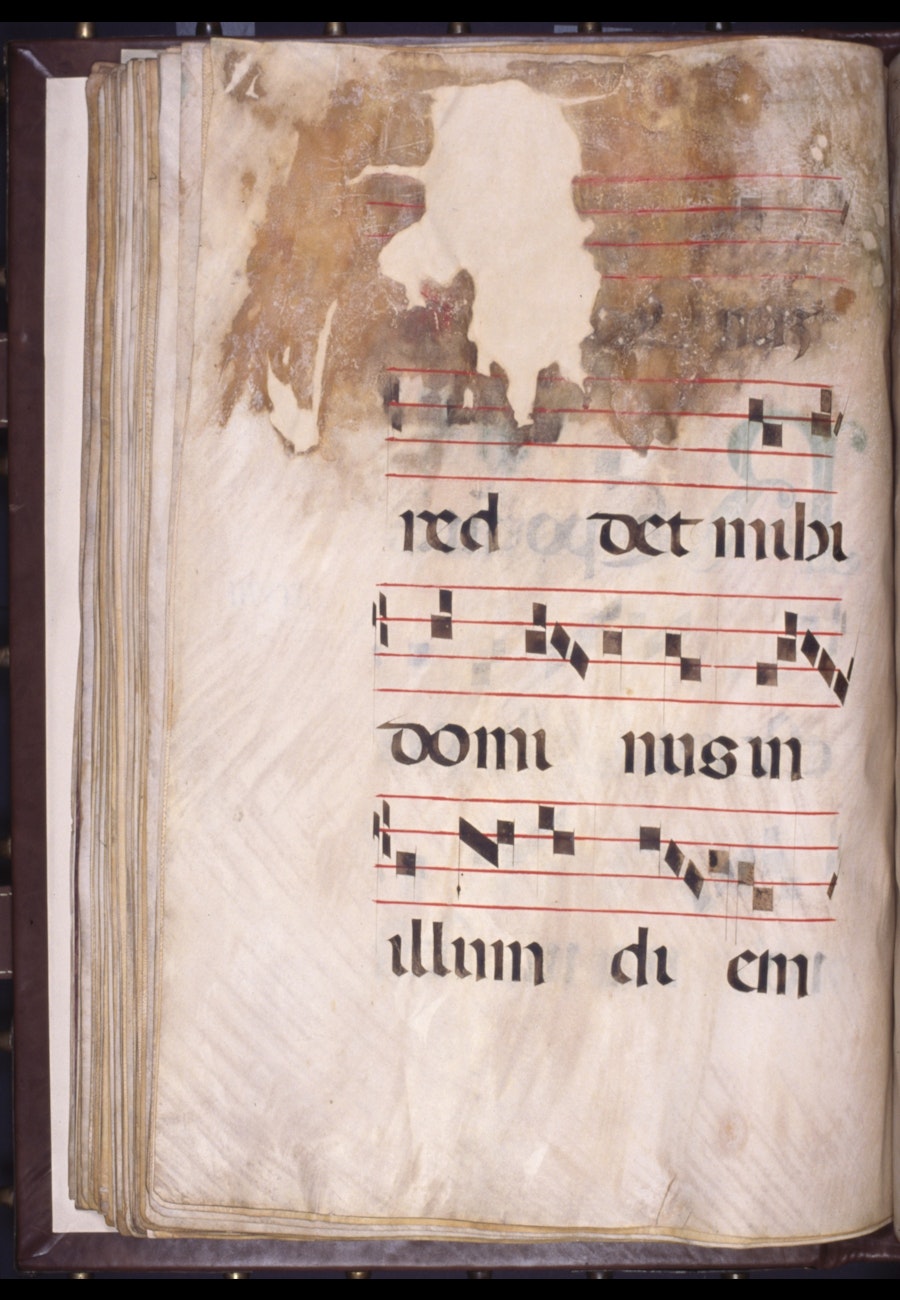 red det mihi
domi nus in
illum di em